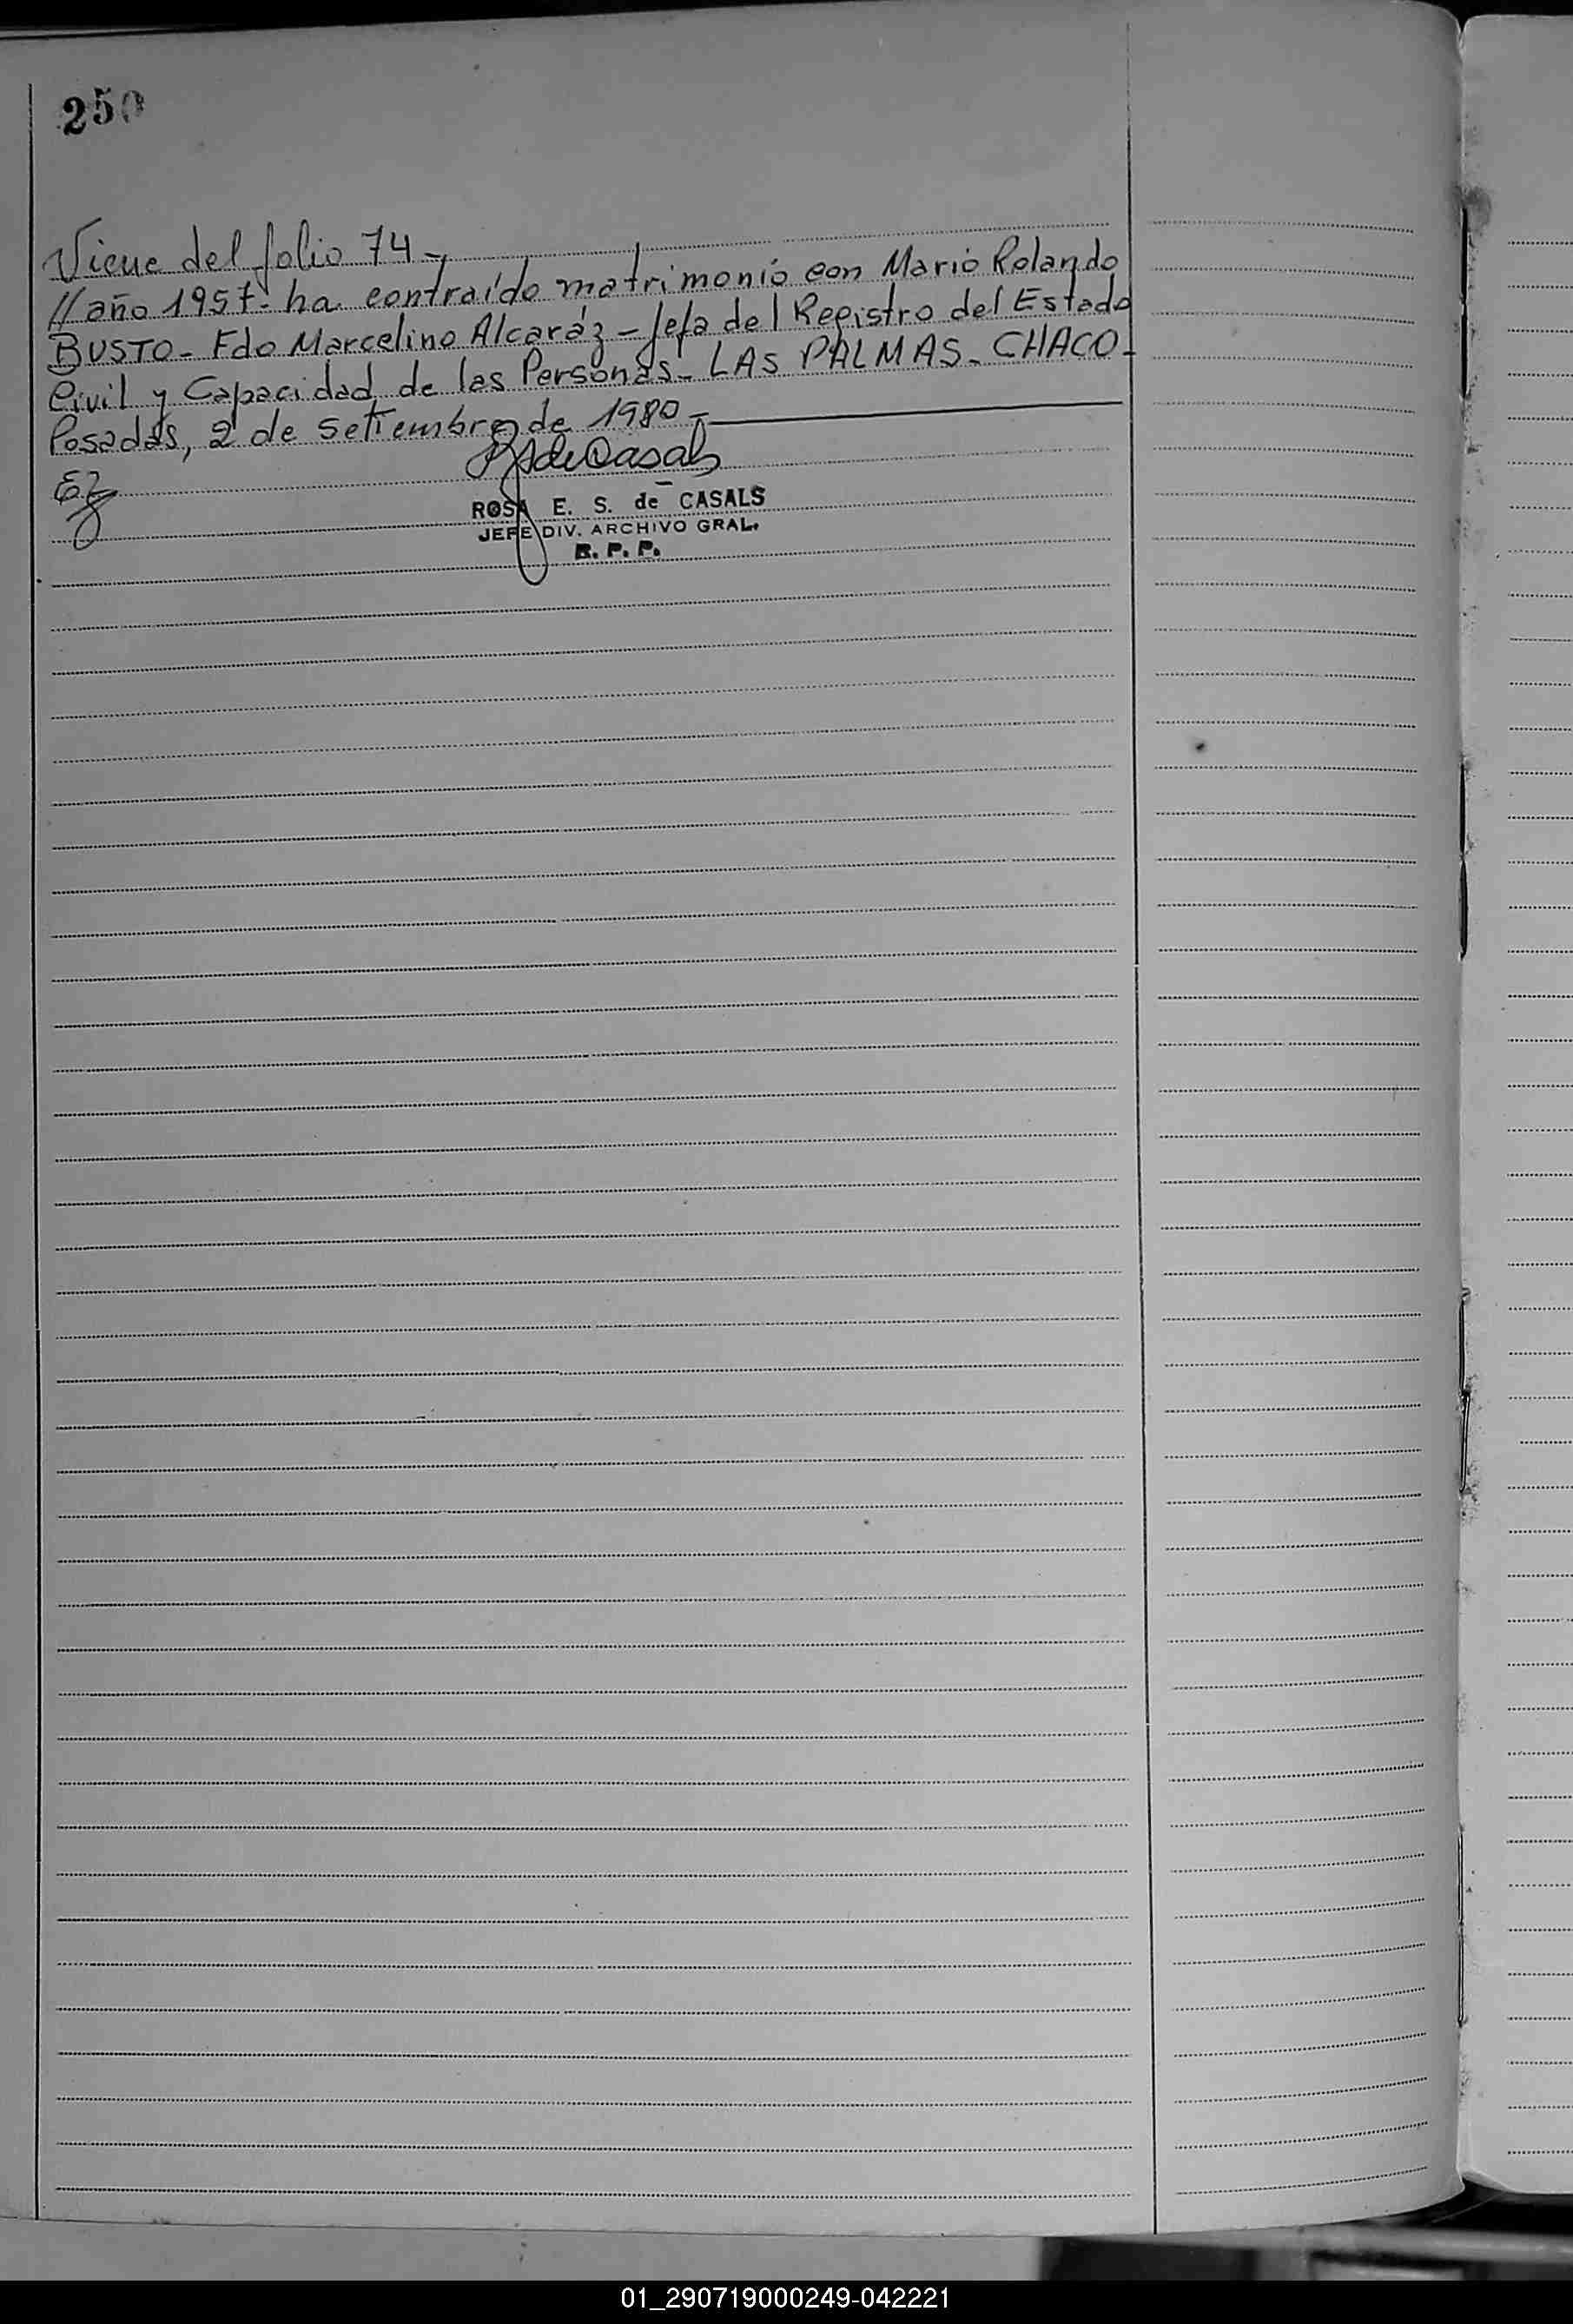 250
Viene del folio 74-
//año 1957- ha contraído matrimonio con Mario Rolando
BUSTO- Fdo Marcelino Alcaráz - Jefa del Registro del Estado
Civil y Capacidad de las Personas- LAS PALMAS- CHACO-
Posadas, 2 de Setiembre de 1980-
ROSA E. S. de CASALS
JEFE DIV. ARCHIVO GRAL.
R. P. P.
01_290719000249-042221